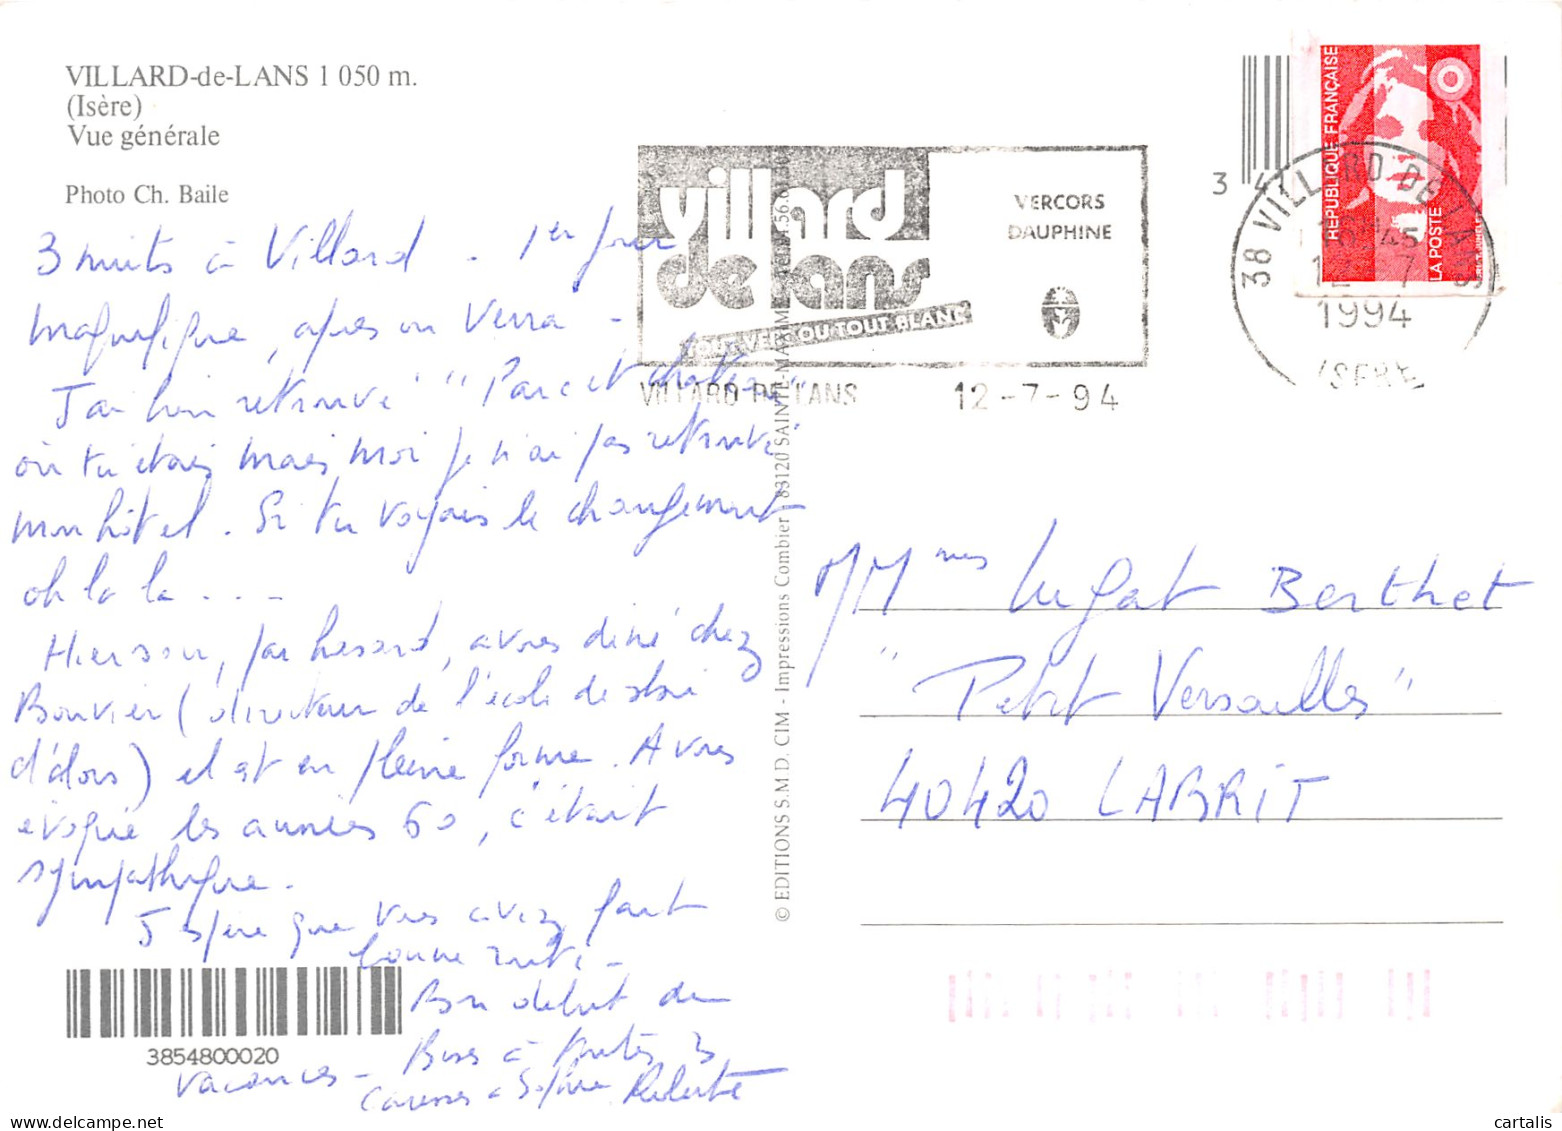 VILLARD-de-LANS 1 050 m.
(Isère)
Vue générale
Photo Ch. Baile
3 nuits à Villard. 1er jour
magnifique, après on verra -
J'ai bien retrouvé "Parc et château"
où tu étais mais moi je n'ai pas retrouvé
mon hôtel. Si tu voyais le changement
oh la la . . -
Hier soir, par hasard, avons diné chez
Bouvier (directeur de l'école de ski
d'alors) il est en pleine forme. Avons
évoqué les années 60, c'était
sympathique.
J'espère que vous avez fait
bonne route -
Bon début de
vacances - Bises à toutes 3
Caresses à
3854800020
© EDITIONS S.M.D. CIM - Impressions Combier 83120 SAINTE-MAXIME
villard
de lans
TOUT VERT OU TOUT BLANC
VERCORS
DAUPHINE
VILLARD DE LANS 12-7-94
3
REPUBLIQUE FRANÇAISE
LA POSTE
38 VILLARD DE LANS
12 - 7
1994
ISERE
MMmes Lugat Berthet
"Petit Versailles"
40420 LABRIT
cartalis
www.delcampe.net